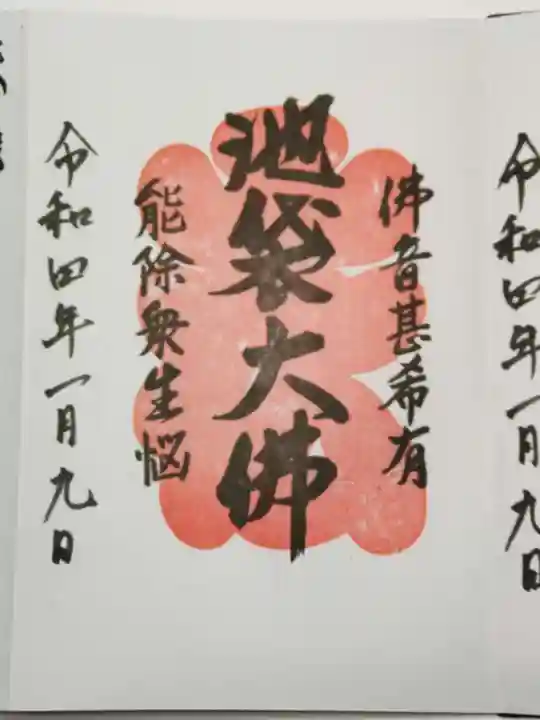 令和四年一月九日
佛音甚希有
池袋大佛
能除衆生悩
令和四年一月九日